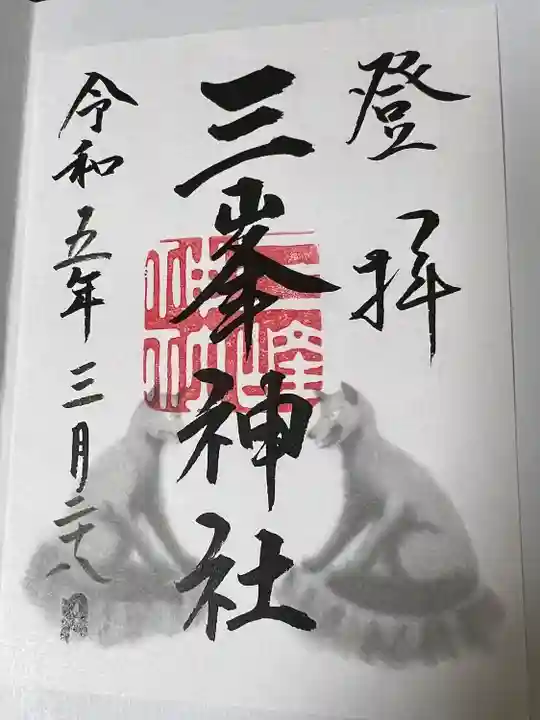 登拝
三峯神社
令和五年三月二十八日